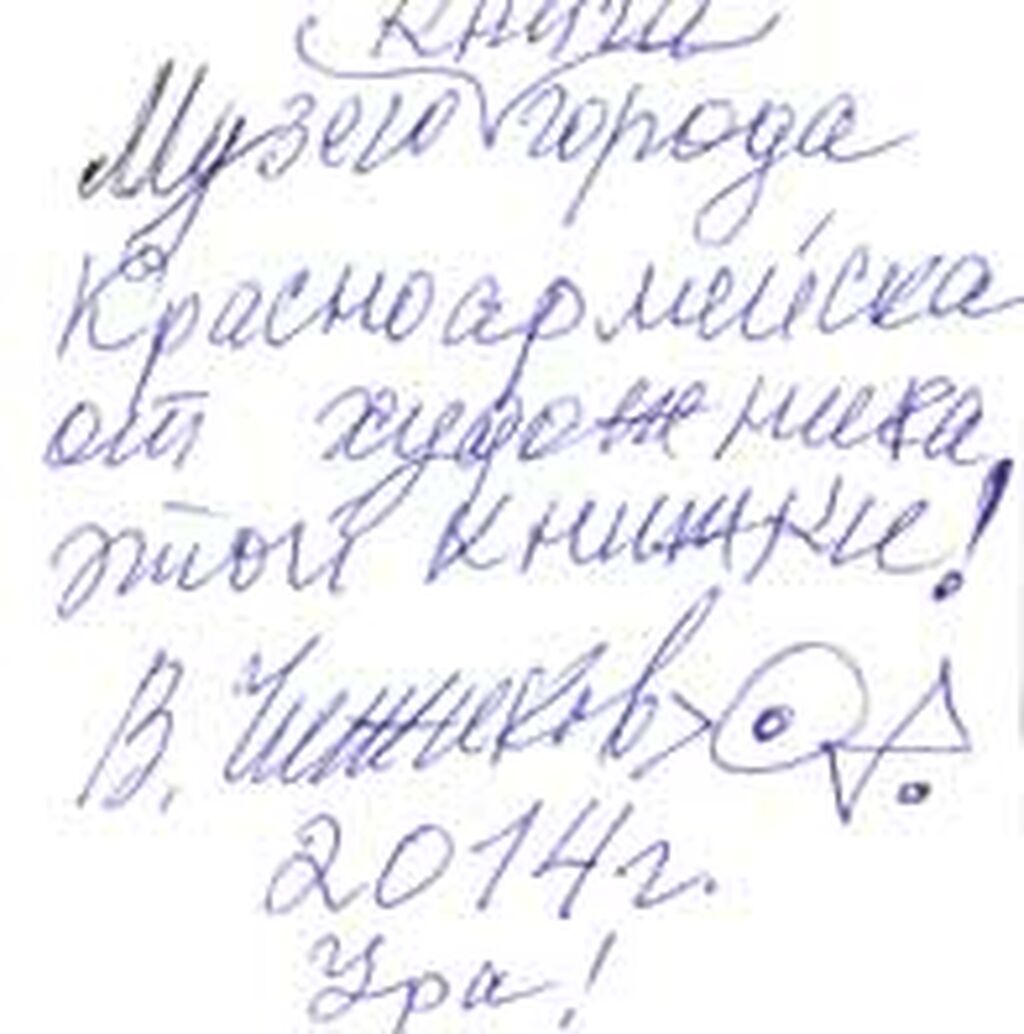 книга
Музею города
Красноармейска
от художника
этой книжки!
В. Чижиков
2014г.
Ура!